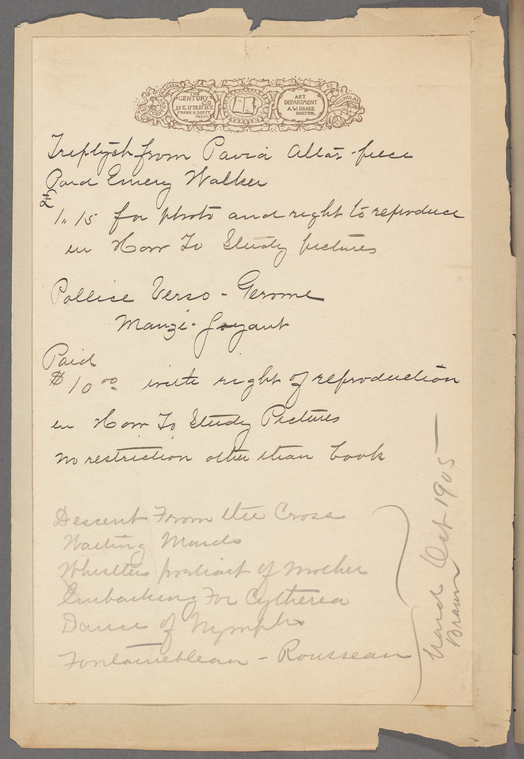 THE
CENTURY Co
33 E. 17TH ST. N.Y.
FRANK H. SCOTT
PREST.
ART
DEPARTMENT
A.W. DRAKE
DIRECTOR.
Treptysh from Pavia Altar-piece
Paid Emery Walker
1. 15 for photo and right to reproduce
in How To Study pictures
Pollice Verso - Gerome
Manzi-Joyant
Paid
$10.00 with right of reproduction
in How To Study Pictures
no restriction other than book
Descent From the Cross
Waiting Maids
Whistlers portrait of Mother
Embarking For Cytherea
Dance of Nymphs
Fontainebleau - Rousseau
Oct 1905
Braun